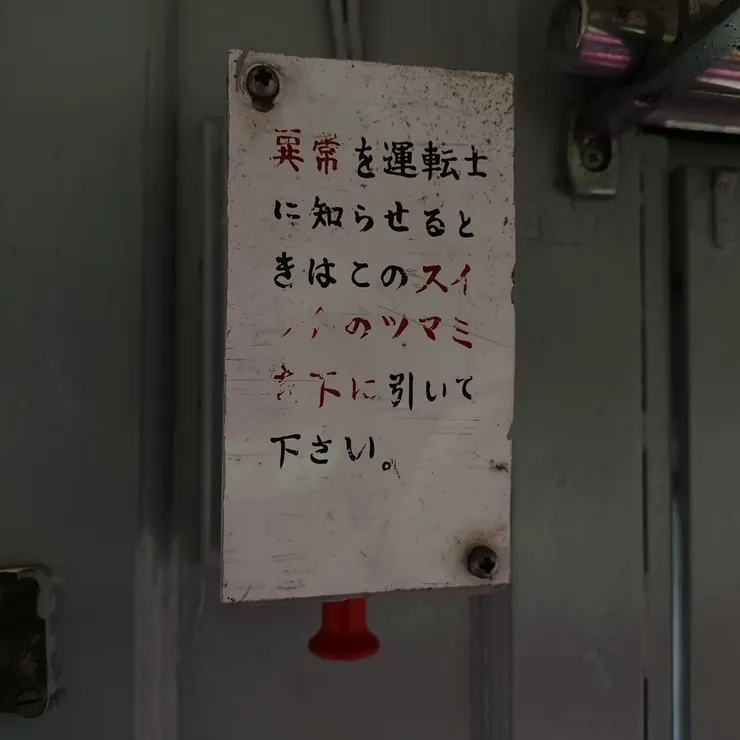 異常を運転士
に知らせると
きはこのスイ
ッチのツマミ
を下に引いて
下さい。